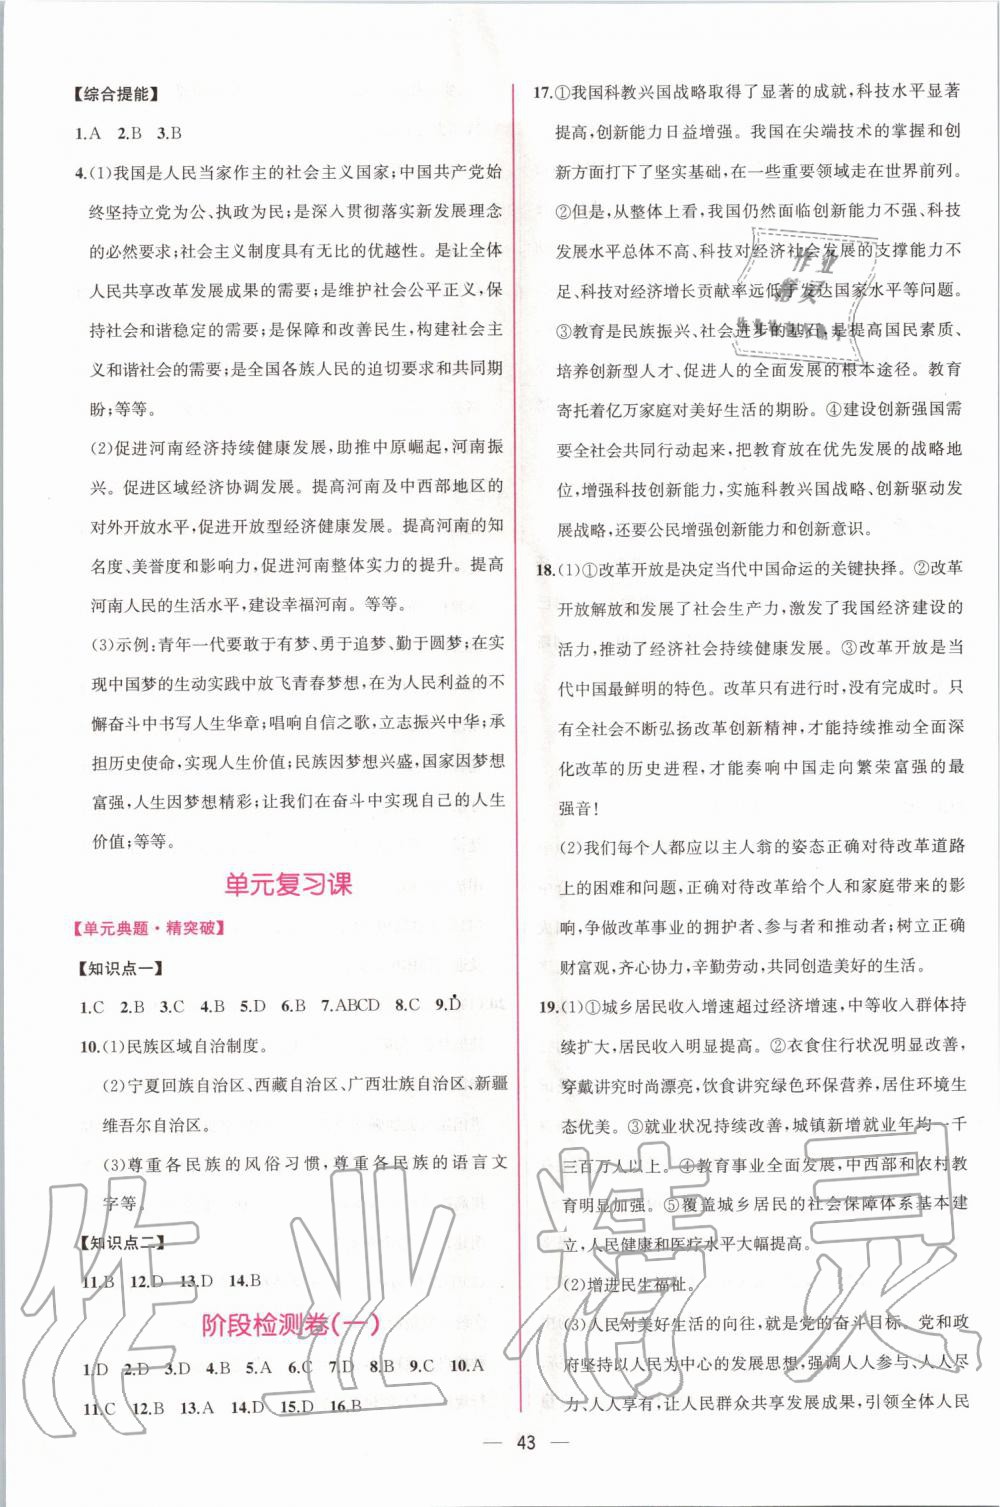 【综合提能】
1.A 2.B 3.B
4.(1)我国是人民当家作主的社会主义国家;中国共产党始
终坚持立党为公、执政为民;是深入贯彻落实新发展理念
的必然要求;社会主义制度具有无比的优越性。是让全体
人民共享改革发展成果的需要;是维护社会公平正义,保
持社会和谐稳定的需要;是保障和改善民生,构建社会主
义和谐社会的需要;是全国各族人民的迫切要求和共同期
盼;等等。
(2)促进河南经济持续健康发展,助推中原崛起,河南振
兴。促进区域经济协调发展。提高河南及中西部地区的
对外开放水平,促进开放型经济健康发展。提高河南的知
名度、美誉度和影响力,促进河南整体实力的提升。提高
河南人民的生活水平,建设幸福河南。等等。
(3)示例:青年一代要敢于有梦、勇于追梦、勤于圆梦;在实
现中国梦的生动实践中放飞青春梦想,在为人民利益的不
懈奋斗中书写人生华章;唱响自信之歌,立志振兴中华;承
担历史使命,实现人生价值;民族因梦想兴盛,国家因梦想
富强,人生因梦想精彩;让我们在奋斗中实现自己的人生
价值;等等。
单元复习课
【单元典题·精突破】
【知识点一】
1.C 2.B 3.C 4.B 5.D 6.B 7.ABCD 8.C 9.D
10.(1)民族区域自治制度。
(2)宁夏回族自治区、西藏自治区、广西壮族自治区、新疆
维吾尔自治区。
(3)尊重各民族的风俗习惯,尊重各民族的语言文
字等。
【知识点二】
11.B 12.D 13.D 14.B
阶段检测卷(一)
1.D 2.D 3.D 4.B 5.A 6.C 7.D 8.B 9.C 10.A
11.C 12.B 13.A 14.D 15.D 16.B
17.①我国科教兴国战略取得了显著的成就,科技水平显著
提高,创新能力日益增强。我国在尖端技术的掌握和创
新方面打下了坚实基础,在一些重要领域走在世界前列。
②但是,从整体上看,我国仍然面临创新能力不强、科技
发展水平总体不高、科技对经济社会发展的支撑能力不
足、科技对经济增长贡献率远低于发达国家水平等问题。
③教育是民族振兴、社会进步的基石,是提高国民素质、
培养创新型人才、促进人的全面发展的根本途径。教育
寄托着亿万家庭对美好生活的期盼。④建设创新强国需
要全社会共同行动起来,把教育放在优先发展的战略地
位,增强科技创新能力,实施科教兴国战略、创新驱动发
展战略,还要公民增强创新能力和创新意识。
18.(1)①改革开放是决定当代中国命运的关键抉择。②改革
开放解放和发展了社会生产力,激发了我国经济建设的
活力,推动了经济社会持续健康发展。③改革开放是当
代中国最鲜明的特色。改革只有进行时,没有完成时。只
有全社会不断弘扬改革创新精神,才能持续推动全面深
化改革的历史进程,才能奏响中国走向繁荣富强的最
强音!
(2)我们每个人都应以主人翁的姿态正确对待改革道路
上的困难和问题,正确对待改革给个人和家庭带来的影
响,争做改革事业的拥护者、参与者和推动者;树立正确
财富观,齐心协力、辛勤劳动,共同创造美好的生活。
19.(1)①城乡居民收入增速超过经济增速,中等收入群体持
续扩大,居民收入明显提高。②衣食住行状况明显改善,
穿戴讲究时尚漂亮,饮食讲究绿色环保营养,居住环境生
态优美。③就业状况持续改善,城镇新增就业年均一千
三百万人以上。④教育事业全面发展,中西部和农村教
育明显加强。⑤覆盖城乡居民的社会保障体系基本建
立,人民健康和医疗水平大幅提高。
(2)增进民生福祉。
(3)人民对美好生活的向往,就是党的奋斗目标。党和政
府坚持以人民为中心的发展思想,强调人人参与、人人尽
力、人人享有,让人民群众共享发展成果,引领全体人民
— 43 —
作业精灵
作业
精灵